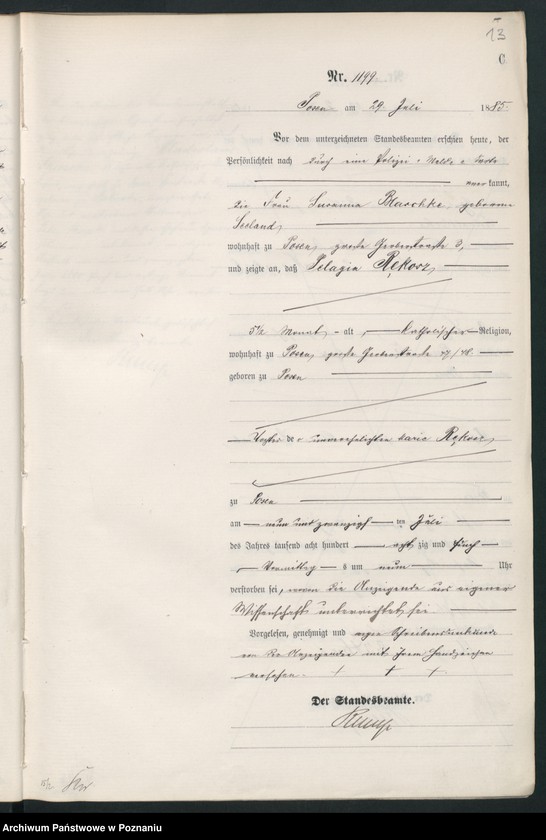 13
C
Nr. 1199
Posen am 29. Juli 1885.
Vor dem unterzeichneten Standesbeamten erschien heute, der
Persönlichkeit nach durch eine Polizei-Melde-Karte
anerkannt,
die Frau Susanna Blaschke, geborene
Seeland,
wohnhaft zu Posen, große Gerberstraße 3,
und zeigte an, daß Pelagia Rękosz,
5½ Monat, alt, katholischer Religion,
wohnhaft zu Posen, große Gerberstraße 47/48
geboren zu Posen
Tochter der unverehelichten Marie Rękosz,
zu Posen
am neun und zwanzigsten Juli
des Jahres tausend acht hundert acht zig und fünf
Vormittags um neun Uhr
verstorben sei, wovon die Anzeigende aus eigener
Wissenschaft unterrichtet sei
Vorgelesen, genehmigt und wegen Schreibensunkunde
von der Anzeigenden mit ihrem Handzeichen
versehen. † † †
Der Standesbeamte.
Archiwum Państwowe w Poznaniu